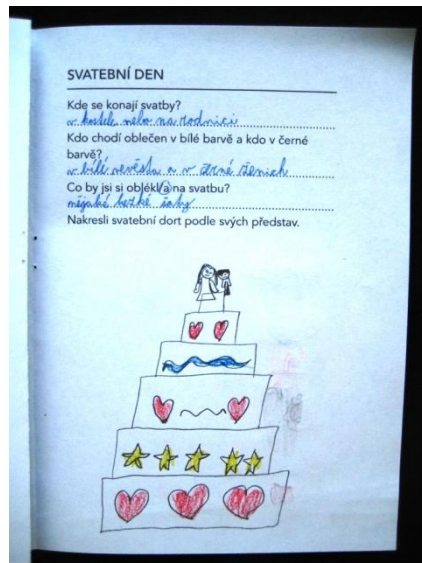 SVATEBNÍ DEN
Kde se konají svatby?
v kostele nebo na radnici
Kdo chodí oblečen v bílé barvě a kdo v černé
barvě?
v bílé nevěsta a v černé ženich
Co by jsi si oblékl/a na svatbu?
nějaké hezké šaty
Nakresli svatební dort podle svých představ.